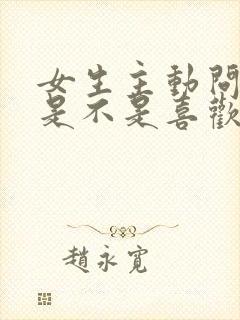 女生主動問
是不是喜歡
趙永寬